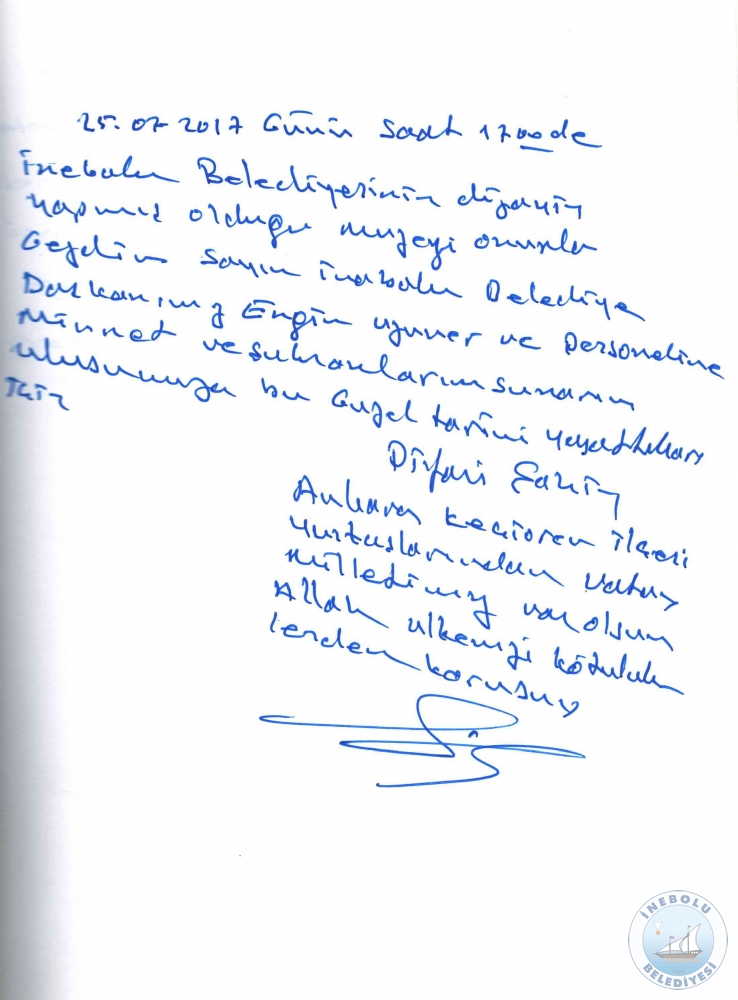 25.07.2017 Günün saat 17.00 de
İnebolu Belediyesinin dizayin
yapmıs olduğu muzeyi onurla
Gezdim sayın inebolu Belediye
Baskanımız Engin uzuner ve Personeline
Minnet ve sukranlarım sunarım
ulusumuza bu Guzel tarihi yasattıkları
için
Şahin
Ankara Kecioren ilçesi
yurtaslarından vatan
milletimiz var olsun
Allah ulkemizi kötuluk
lerden korusun
İNEBOLU
BELEDİYESİ